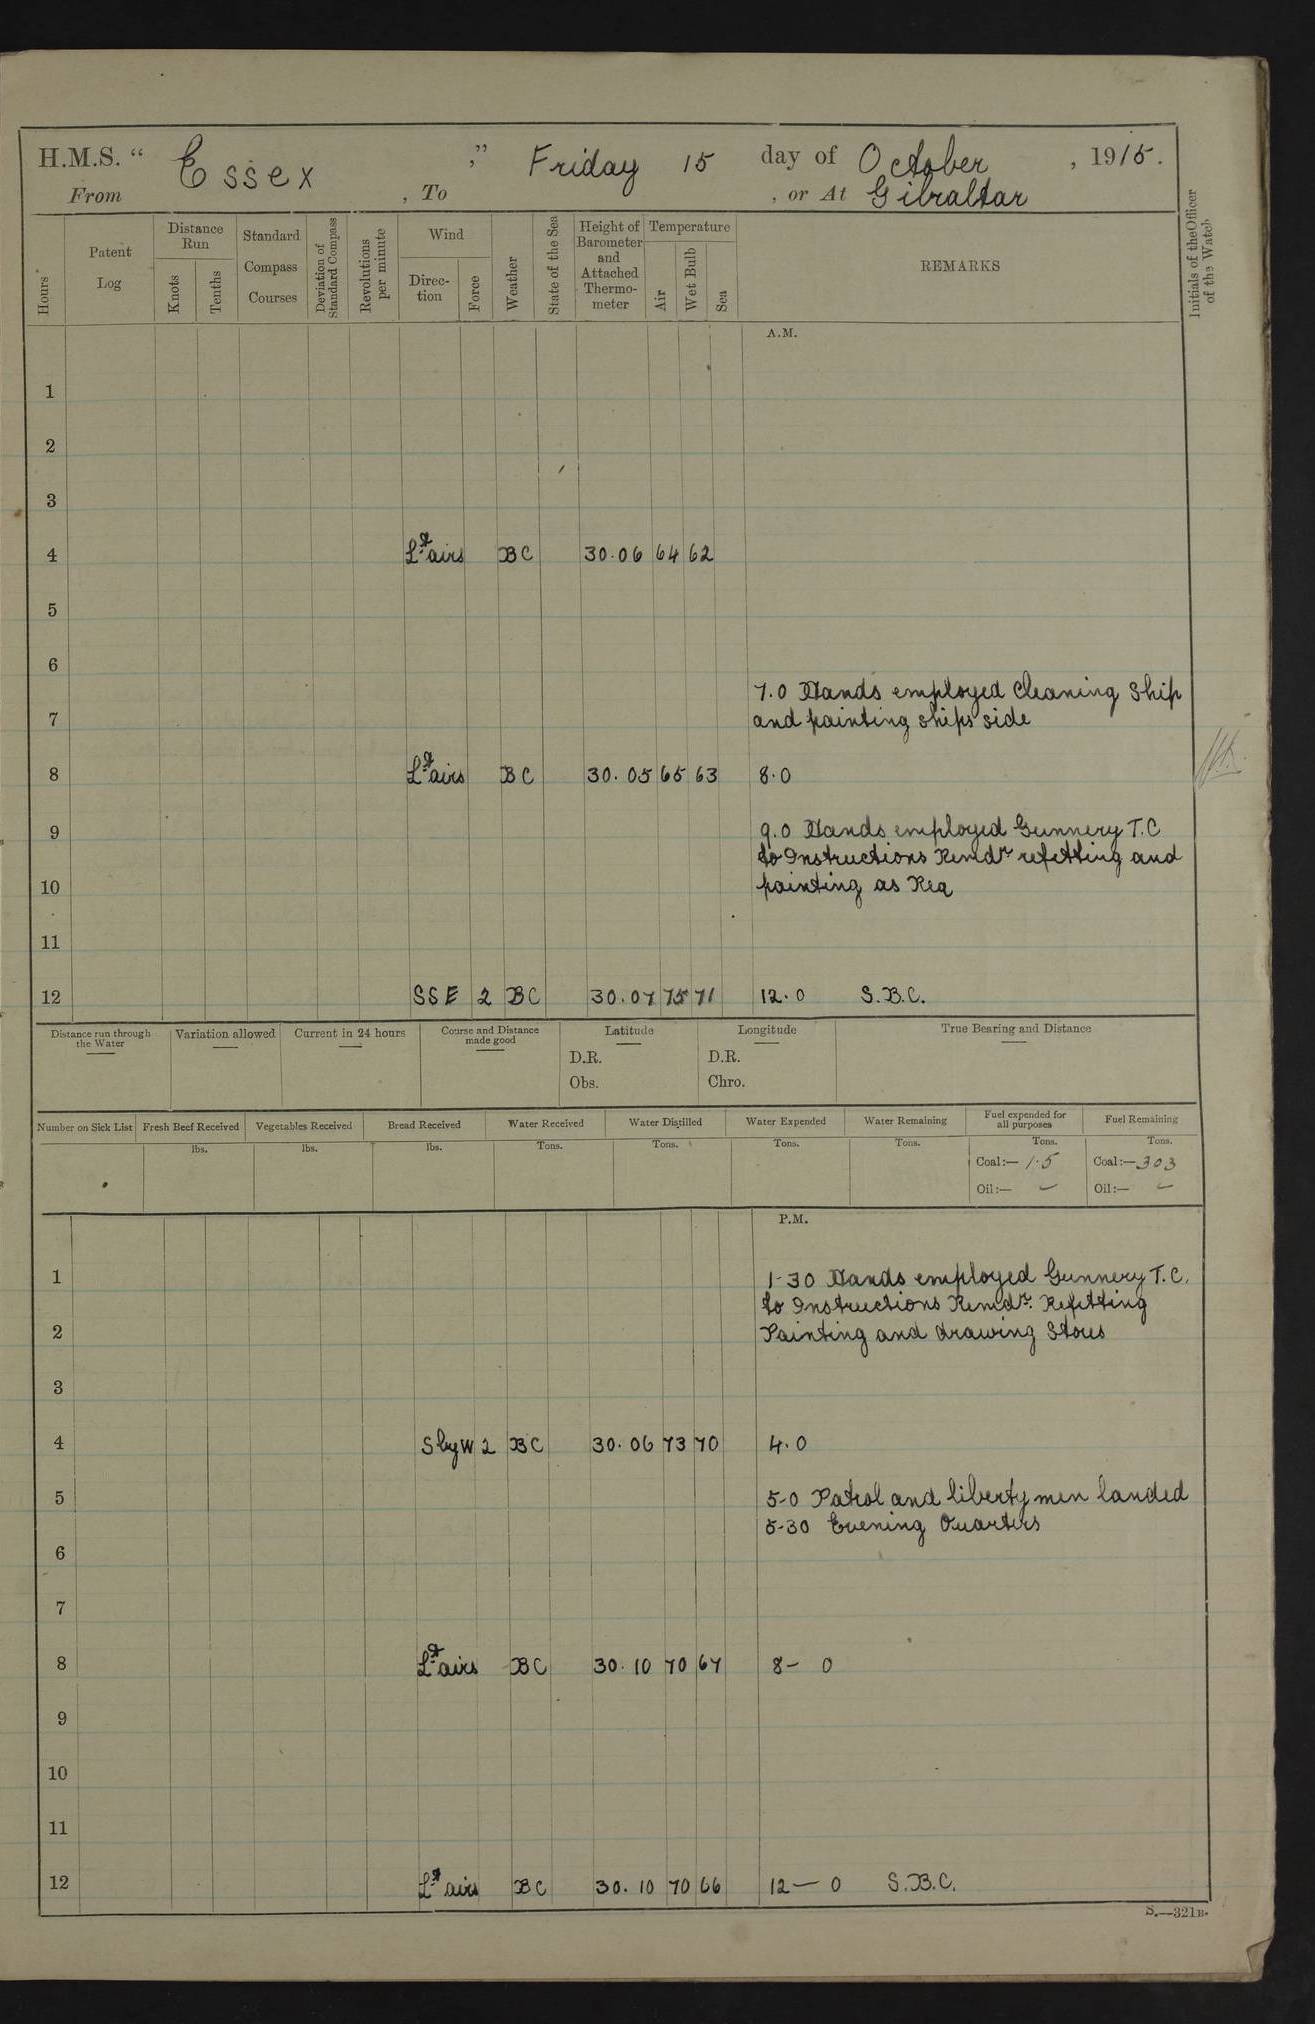 H.M.S. “ Essex ,” Friday 15 day of October , 1915.
From , To , or At Gibraltar
Hours
Patent Log
Distance Run
Knots
Tenths
Standard Compass Courses
Deviation of Standard Compass
Revolutions per minute
Wind
Direc-tion
Force
Weather
State of the Sea
Height of Barometer and Attached Thermo-meter
Temperature
Air
Wet Bulb
Sea
REMARKS
Initials of the Officer of the Watch
A.M.
1
2
3
4 Lt airs BC 30.06 64 62
5
6
7.0 Hands employed Cleaning Ship
7 and painting ships side
8 Lt airs BC 30.05 65 63 8.0
9 9.0 Hands employed Gunnery T.C
to Instructions Remdr refitting and
10 painting as Req
11
12 SSE 2 BC 30.07 75 71 12.0 S.B.C.
Distance run through the Water
Variation allowed
Current in 24 hours
Course and Distance made good
Latitude
D.R.
Obs.
Longitude
D.R.
Chro.
True Bearing and Distance
Number on Sick List
Fresh Beef Received
lbs.
Vegetables Received
lbs.
Bread Received
lbs.
Water Received
Tons.
Water Distilled
Tons.
Water Expended
Tons.
Water Remaining
Tons.
Fuel expended for all purposes
Tons.
Coal:— 1.5
Oil:— —
Fuel Remaining
Tons.
Coal:— 303
Oil:— —
P.M.
1 1-30 Hands employed Gunnery T.C.
to Instructions Remdr. Refitting
2 Painting and drawing Stores
3
4 SbyW 2 BC 30.06 73 70 4.0
5 5-0 Patrol and liberty men landed
5-30 Evening Quarters
6
7
8 Lt airs BC 30.10 70 67 8- 0
9
10
11
12 Lt airs BC 30.10 70 66 12- 0 S.B.C.
S.—321B.